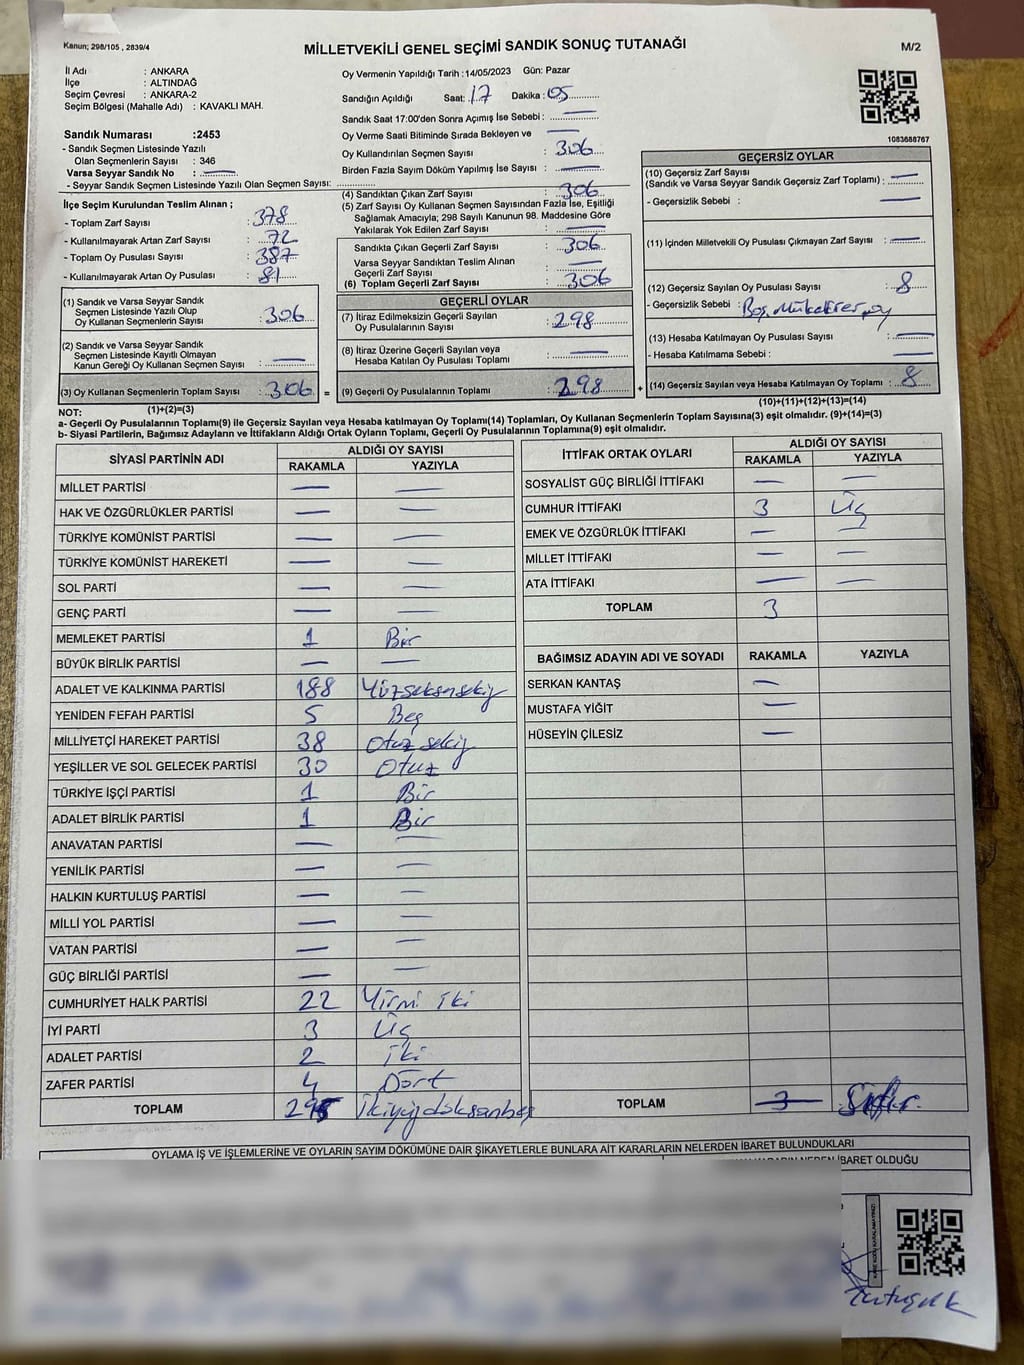 Kanun; 298/105 , 2839/4
MİLLETVEKİLİ GENEL SEÇİMİ SANDIK SONUÇ TUTANAĞI
M/2
İl Adı : ANKARA
İlçe : ALTINDAĞ
Seçim Çevresi : ANKARA-2
Seçim Bölgesi (Mahalle Adı) : KAVAKLI MAH.
Sandık Numarası :2453
- Sandık Seçmen Listesinde Yazılı
Olan Seçmenlerin Sayısı : 346
Varsa Seyyar Sandık No : —
- Seyyar Sandık Seçmen Listesinde Yazılı Olan Seçmen Sayısı:
Oy Vermenin Yapıldığı Tarih :14/05/2023 Gün: Pazar
Sandığın Açıldığı Saat: 17 Dakika : 05
Sandık Saat 17:00'den Sonra Açımış İse Sebebi : —
Oy Verme Saati Bitiminde Sırada Bekleyen ve —
Oy Kullandırılan Seçmen Sayısı : 306
Birden Fazla Sayım Döküm Yapılmış İse Sayısı : —
1083688767
İlçe Seçim Kurulundan Teslim Alınan ;
- Toplam Zarf Sayısı : 378
- Kullanılmayarak Artan Zarf Sayısı : 72
- Toplam Oy Pusulası Sayısı : 387
- Kullanılmayarak Artan Oy Pusulası : 81
(1) Sandık ve Varsa Seyyar Sandık
Seçmen Listesinde Yazılı Olup
Oy Kullanan Seçmenlerin Sayısı : 306
(2) Sandık ve Varsa Seyyar Sandık
Seçmen Listesinde Kayıtlı Olmayan
Kanun Gereği Oy Kullanan Seçmen Sayısı : —
(3) Oy Kullanan Seçmenlerin Toplam Sayısı : 306 =
(1)+(2)=(3)
(4) Sandıktan Çıkan Zarf Sayısı : 306
(5) Zarf Sayısı Oy Kullanan Seçmen Sayısından Fazla İse, Eşitliği
Sağlamak Amacıyla; 298 Sayılı Kanunun 98. Maddesine Göre
Yakılarak Yok Edilen Zarf Sayısı : —
Sandıkta Çıkan Geçerli Zarf Sayısı : 306
Varsa Seyyar Sandıktan Teslim Alınan
Geçerli Zarf Sayısı : —
(6) Toplam Geçerli Zarf Sayısı : 306
GEÇERLİ OYLAR
(7) İtiraz Edilmeksizin Geçerli Sayılan
Oy Pusulalarının Sayısı : 298
(8) İtiraz Üzerine Geçerli Sayılan veya
Hesaba Katılan Oy Pusulası Toplamı : —
(9) Geçerli Oy Pusulalarının Toplamı : 298 +
GEÇERSİZ OYLAR
(10) Geçersiz Zarf Sayısı
(Sandık ve Varsa Seyyar Sandık Geçersiz Zarf Toplamı) : —
- Geçersizlik Sebebi : —
(11) İçinden Milletvekili Oy Pusulası Çıkmayan Zarf Sayısı : —
(12) Geçersiz Sayılan Oy Pusulası Sayısı : 8
- Geçersizlik Sebebi : Boş, Mükerrer oy
(13) Hesaba Katılmayan Oy Pusulası Sayısı : —
- Hesaba Katılmama Sebebi : —
(14) Geçersiz Sayılan veya Hesaba Katılmayan Oy Toplamı : 8
(10)+(11)+(12)+(13)=(14)
NOT:
a- Geçerli Oy Pusulaların Toplamı(9) ile Geçersiz Sayılan veya Hesaba katılmayan Oy Toplamı(14) Toplamları, Oy Kullanan Seçmenlerin Toplam Sayısına(3) eşit olmalıdır. (9)+(14)=(3)
b- Siyasi Partilerin, Bağımsız Adayların ve İttifakların Aldığı Ortak Oyların Toplamı, Geçerli Oy Pusulalarının Toplamına(9) eşit olmalıdır.
SİYASİ PARTİNİN ADI ALDIĞI OY SAYISI
RAKAMLA YAZIYLA
MİLLET PARTİSİ — —
HAK VE ÖZGÜRLÜKLER PARTİSİ — —
TÜRKİYE KOMÜNİST PARTİSİ — —
TÜRKİYE KOMÜNİST HAREKETİ — —
SOL PARTİ — —
GENÇ PARTİ — —
MEMLEKET PARTİSİ 1 Bir
BÜYÜK BİRLİK PARTİSİ — —
ADALET VE KALKINMA PARTİSİ 188 Yüzseksensekiz
YENİDEN FEFAH PARTİSİ 5 Beş
MİLLİYETÇİ HAREKET PARTİSİ 38 Otuz sekiz
YEŞİLLER VE SOL GELECEK PARTİSİ 30 Otuz
TÜRKİYE İŞÇİ PARTİSİ 1 Bir
ADALET BİRLİK PARTİSİ 1 Bir
ANAVATAN PARTİSİ — —
YENİLİK PARTİSİ — —
HALKIN KURTULUŞ PARTİSİ — —
MİLLİ YOL PARTİSİ — —
VATAN PARTİSİ — —
GÜÇ BİRLİĞİ PARTİSİ — —
CUMHURİYET HALK PARTİSİ 22 Yirmi iki
İYİ PARTİ 3 Üç
ADALET PARTİSİ 2 İki
ZAFER PARTİSİ 4 Dört
TOPLAM 295 İkiyüzdoksanbeş
İTTİFAK ORTAK OYLARI ALDIĞI OY SAYISI
RAKAMLA YAZIYLA
SOSYALİST GÜÇ BİRLİĞİ İTTİFAKI — —
CUMHUR İTTİFAKI 3 Üç
EMEK VE ÖZGÜRLÜK İTTİFAKI — —
MİLLET İTTİFAKI — —
ATA İTTİFAKI — —
TOPLAM 3
BAĞIMSIZ ADAYIN ADI VE SOYADI RAKAMLA YAZIYLA
SERKAN KANTAŞ —
MUSTAFA YİĞİT —
HÜSEYİN ÇİLESİZ —
TOPLAM 3 Sıfır.
OYLAMA İŞ VE İŞLEMLERİNE VE OYLARIN SAYIM DÖKÜMÜNE DAİR ŞİKAYETLERLE BUNLARA AİT KARARLARIN NELERDEN İBARET BULUNDUKLARI
KARARIN NEDEN İBARET OLDUĞU